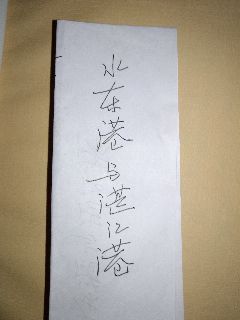 水东港与湛江港